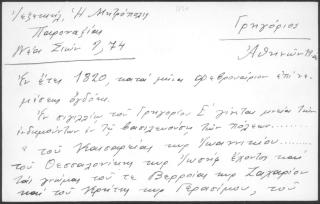 Γρηγόριος
Ἡ Μητρόπολις
Παροναξίας
Νέα Σιών 9, 74
Ἀθηνῶν
Ἐν ἔτει 1820, κατὰ μῆνα Φεβρουάριον ἐπινε-
μήσεως ὀγδόης.
Ἐν σιγιλλίῳ τοῦ Γρηγορίου Ε΄ γίνεται μνεία τῶν
ἐνδημούντων ἐν τῇ βασιλευούσῃ τῶν πόλεων.....
"τοῦ Καισαρείας κυρ Ἰωαννικίου.....
τοῦ Θεσσαλονίκης κυρ Ἰωσὴφ ἔχοντος καὶ
τὰς γνώμας τοῦ τε Βερροίας κυρ Ζαχαρίου
καὶ τοῦ Κρήτης κυρ Γερασίμου, τοῦ